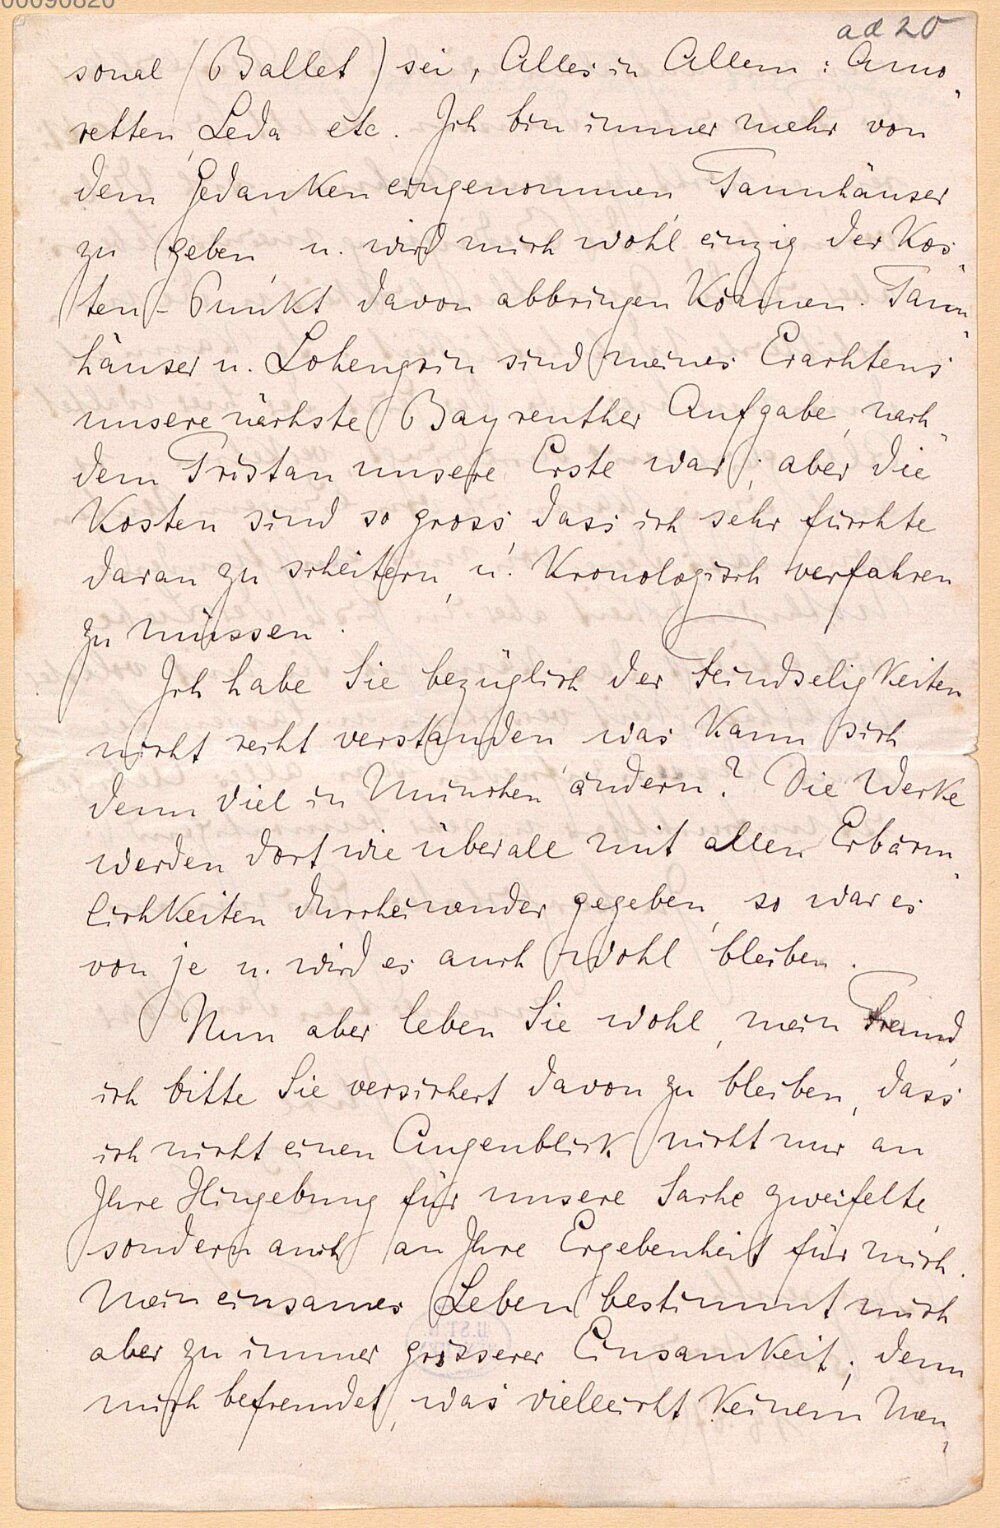 00090820
ad 20
sonal (Ballet) sei, Alles in Allem: Amo„
retten, Leda etc. Ich bin immer mehr von
dem Gedanken eingenommen, Tannhäuser
zu geben, u. wird mich wohl einzig der Kos„
ten-Punkt davon abbringen können. Tann„
häuser u. Lohengrin sind meines Erachtens
unsere nächste Bayreuther Aufgabe, nach„
dem Tristan unsere Erste war; aber die
Kosten sind so gross, dass ich sehr fürchte
daran zu scheitern, u. Kronologisch verfahren
zu müssen.
Ich habe Sie bezüglich der Feindseligkeiten
nicht recht verstanden, was kann sich
denn viel in München ändern? Die Werke
werden dort wie überall mit allen Erbärm„
lichkeiten durcheinander gegeben, so war es
von je u. wird es auch wohl bleiben.
Nun aber leben Sie wohl, mein Freund,
ich bitte Sie versichert davon zu bleiben, dass
ich nicht einen Augenblick nicht nur an
Ihre Hingebung für unsere Sache zweifelte,
sondern auch an Ihre Ergebenheit für mich.
Mein einsames Leben bestimmt mich
aber zu immer grösserer Einsamkeit; denn
mich befremdet, was vielleicht keinem Men„